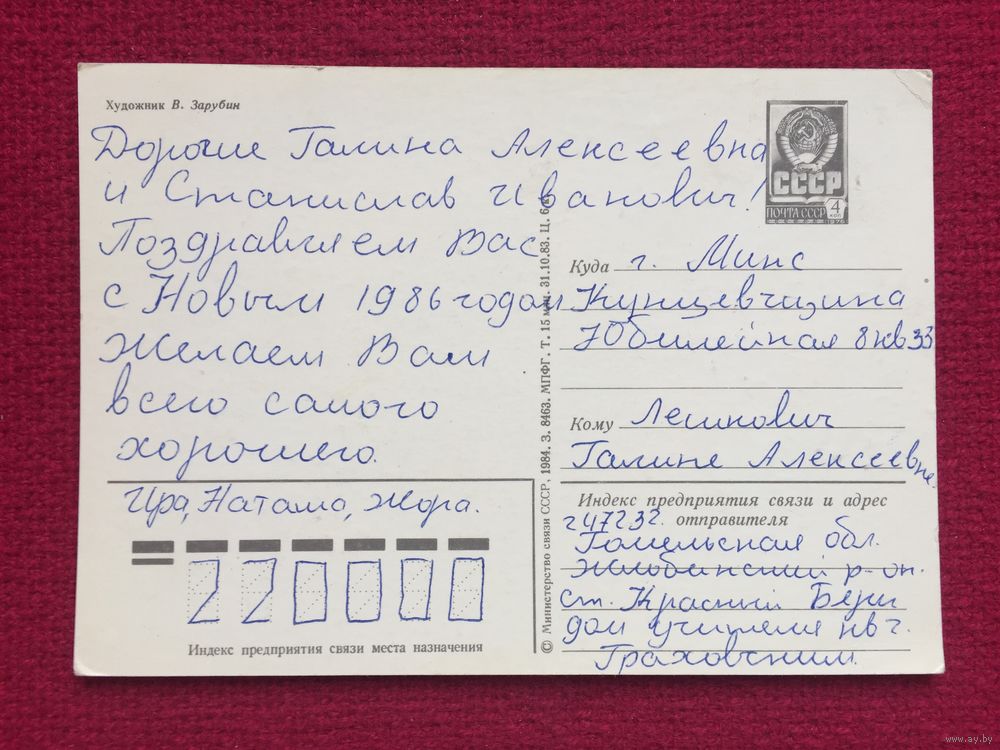 Художник В. Зарубин
Дорогие Галина Алексеевна
и Станислав Иванович!
Поздравляем Вас
с Новым 1986 годом
Желаем Вам
всего самого
хорошего.
Ира, Натала, Жора.
220000
Индекс предприятия связи места назначения
© Министерство связи СССР, 1984. З. 8463. МПФГ. Т. 15 млн. 31.10.83. Ц. 6 к.
СССР
ПОЧТА СССР
4
КОП
1976
Куда г. Минс
Кунцевчщина
Юбилейная 8 кв 33
Кому Лешкович
Галине Алексеевне.
Индекс предприятия связи и адрес
отправителя
247232.
Гомельская обл.
Жлобинский р-он.
ст. Красний Берег
дом учителя кв 2.
Граховским.
www.ay.by